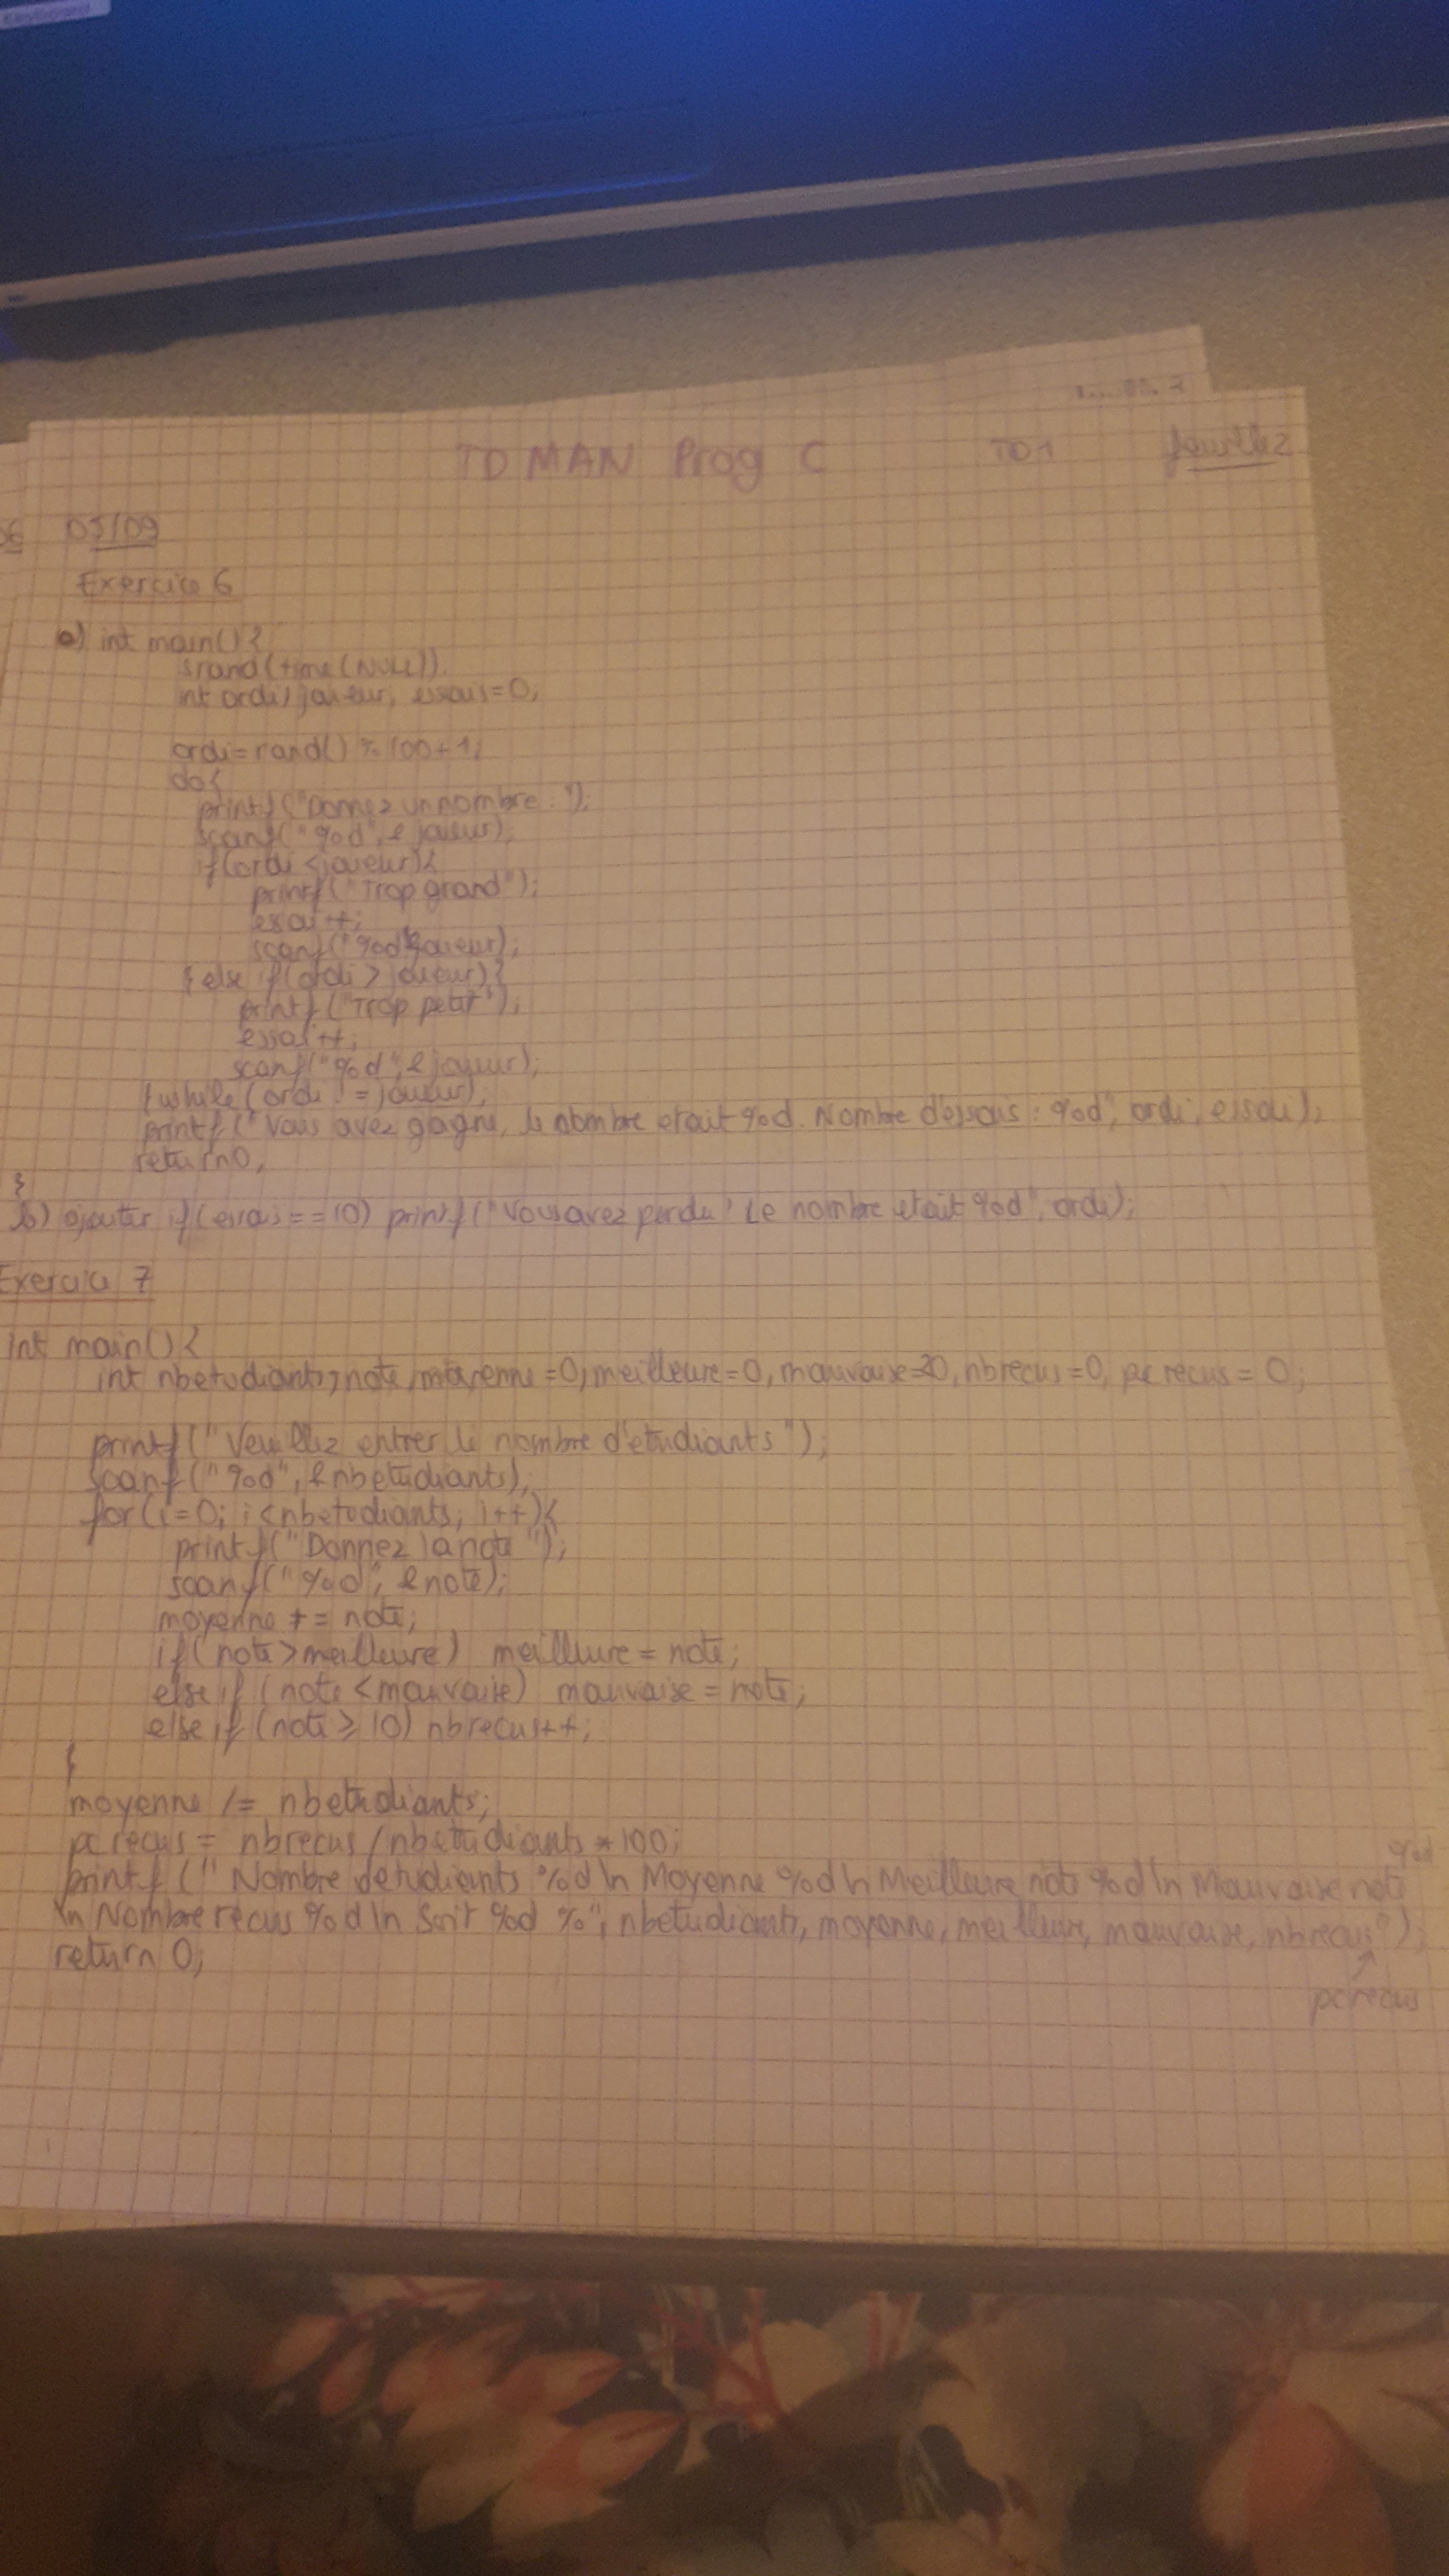 TD MAN Prog C TD1 feuille 2
05/09
Exercice 6
a) int main(){
srand(time(NULL)).
int ordi, joueur, essais=0;
ordi=rand() % 100+1;
do{
printf("Donnez un nombre : ");
scanf("%d", &joueur);
if(ordi <joueur){
printf("Trop grand");
essai++;
scanf("%d"&joueur);
}else if(ordi > joueur){
printf("Trop petit");
essai++;
scanf("%d", &joueur);
}while(ordi != joueur);
printf("Vous avez gagne, le nombre etait %d. Nombre d'essais : %d", ordi, essai);
return0;
}
b) ajouter if(essais==10) printf("Vous avez perdu! Le nombre etait %d", ordi);
Exercice 7
int main(){
int nbetudiants, note, moyenne=0, meilleure=0, mauvaise=20, nbrecus=0, pcrecus=0;
printf("Veuillez entrer le nombre d'etudiants");
scanf("%d", &nbetudiants);
for(i=0; i<nbetudiants; i++){
printf("Donnez la note ");
scanf("%d", &note);
moyenne += note;
if(note>meilleure) meilleure = note;
else if (note <mauvaise) mauvaise = note;
else if (note ≥ 10) nbrecus++;
}
moyenne /= nbetudiants;
pcrecus = nbrecus /nbetudiants *100;
%d
printf (" Nombre detudiants %d \n Moyenne %d \n Meilleure note %d \n Mauvaise note
\n Nombre recus %d \n Soit %d %", nbetudiants, moyenne, meilleure, mauvaise, nbrecus);
return 0;
pcrecus